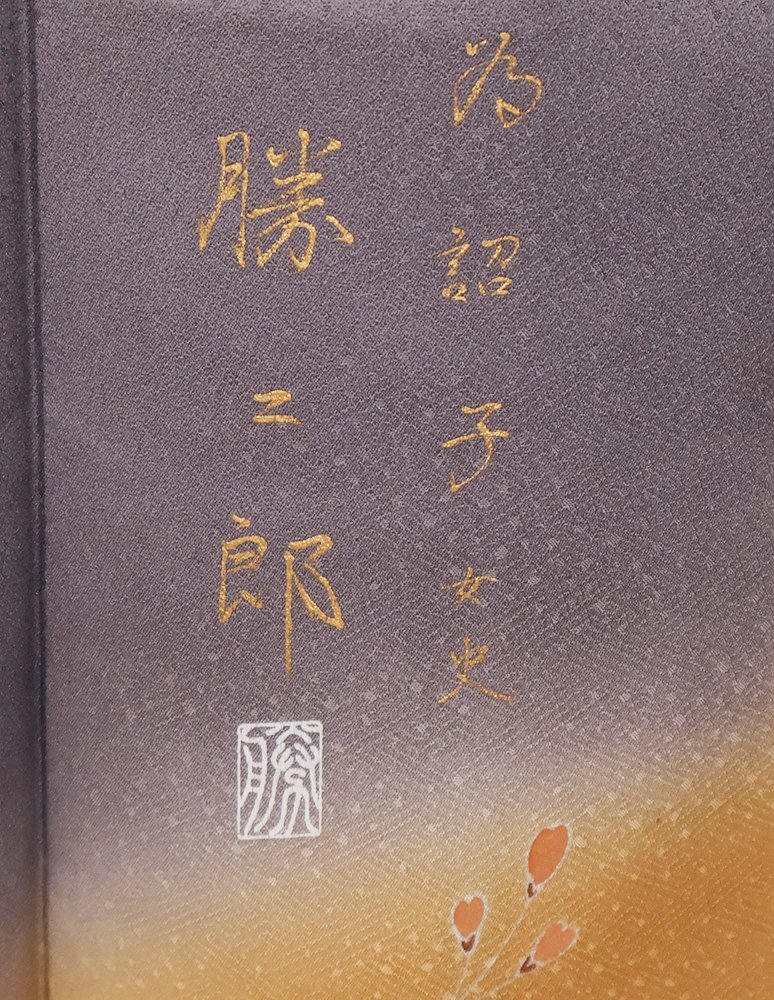 為詔子女史
勝二郎
勝